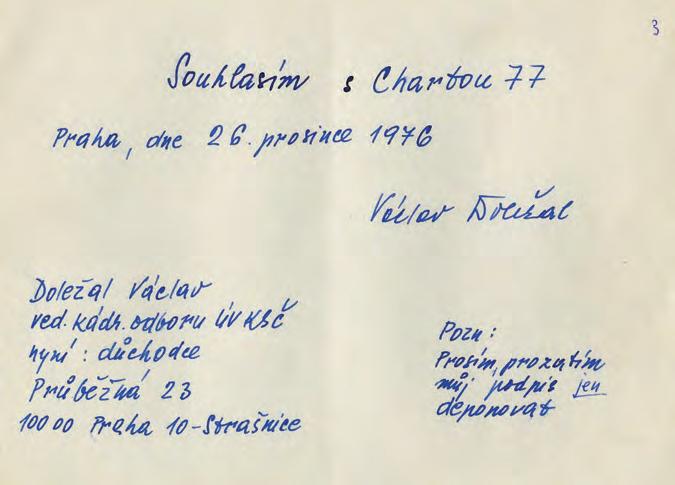 3
Souhlasím s Chartou 77
Praha, dne 26. prosince 1976
Václav Doležal
Doležal Václav
ved. kádr. odboru ÚV KSČ
nyní: důchodce
Průběžná 23
100 00 Praha 10-Strašnice
Pozn:
Prosím, prozatím
můj podpis jen
deponovat